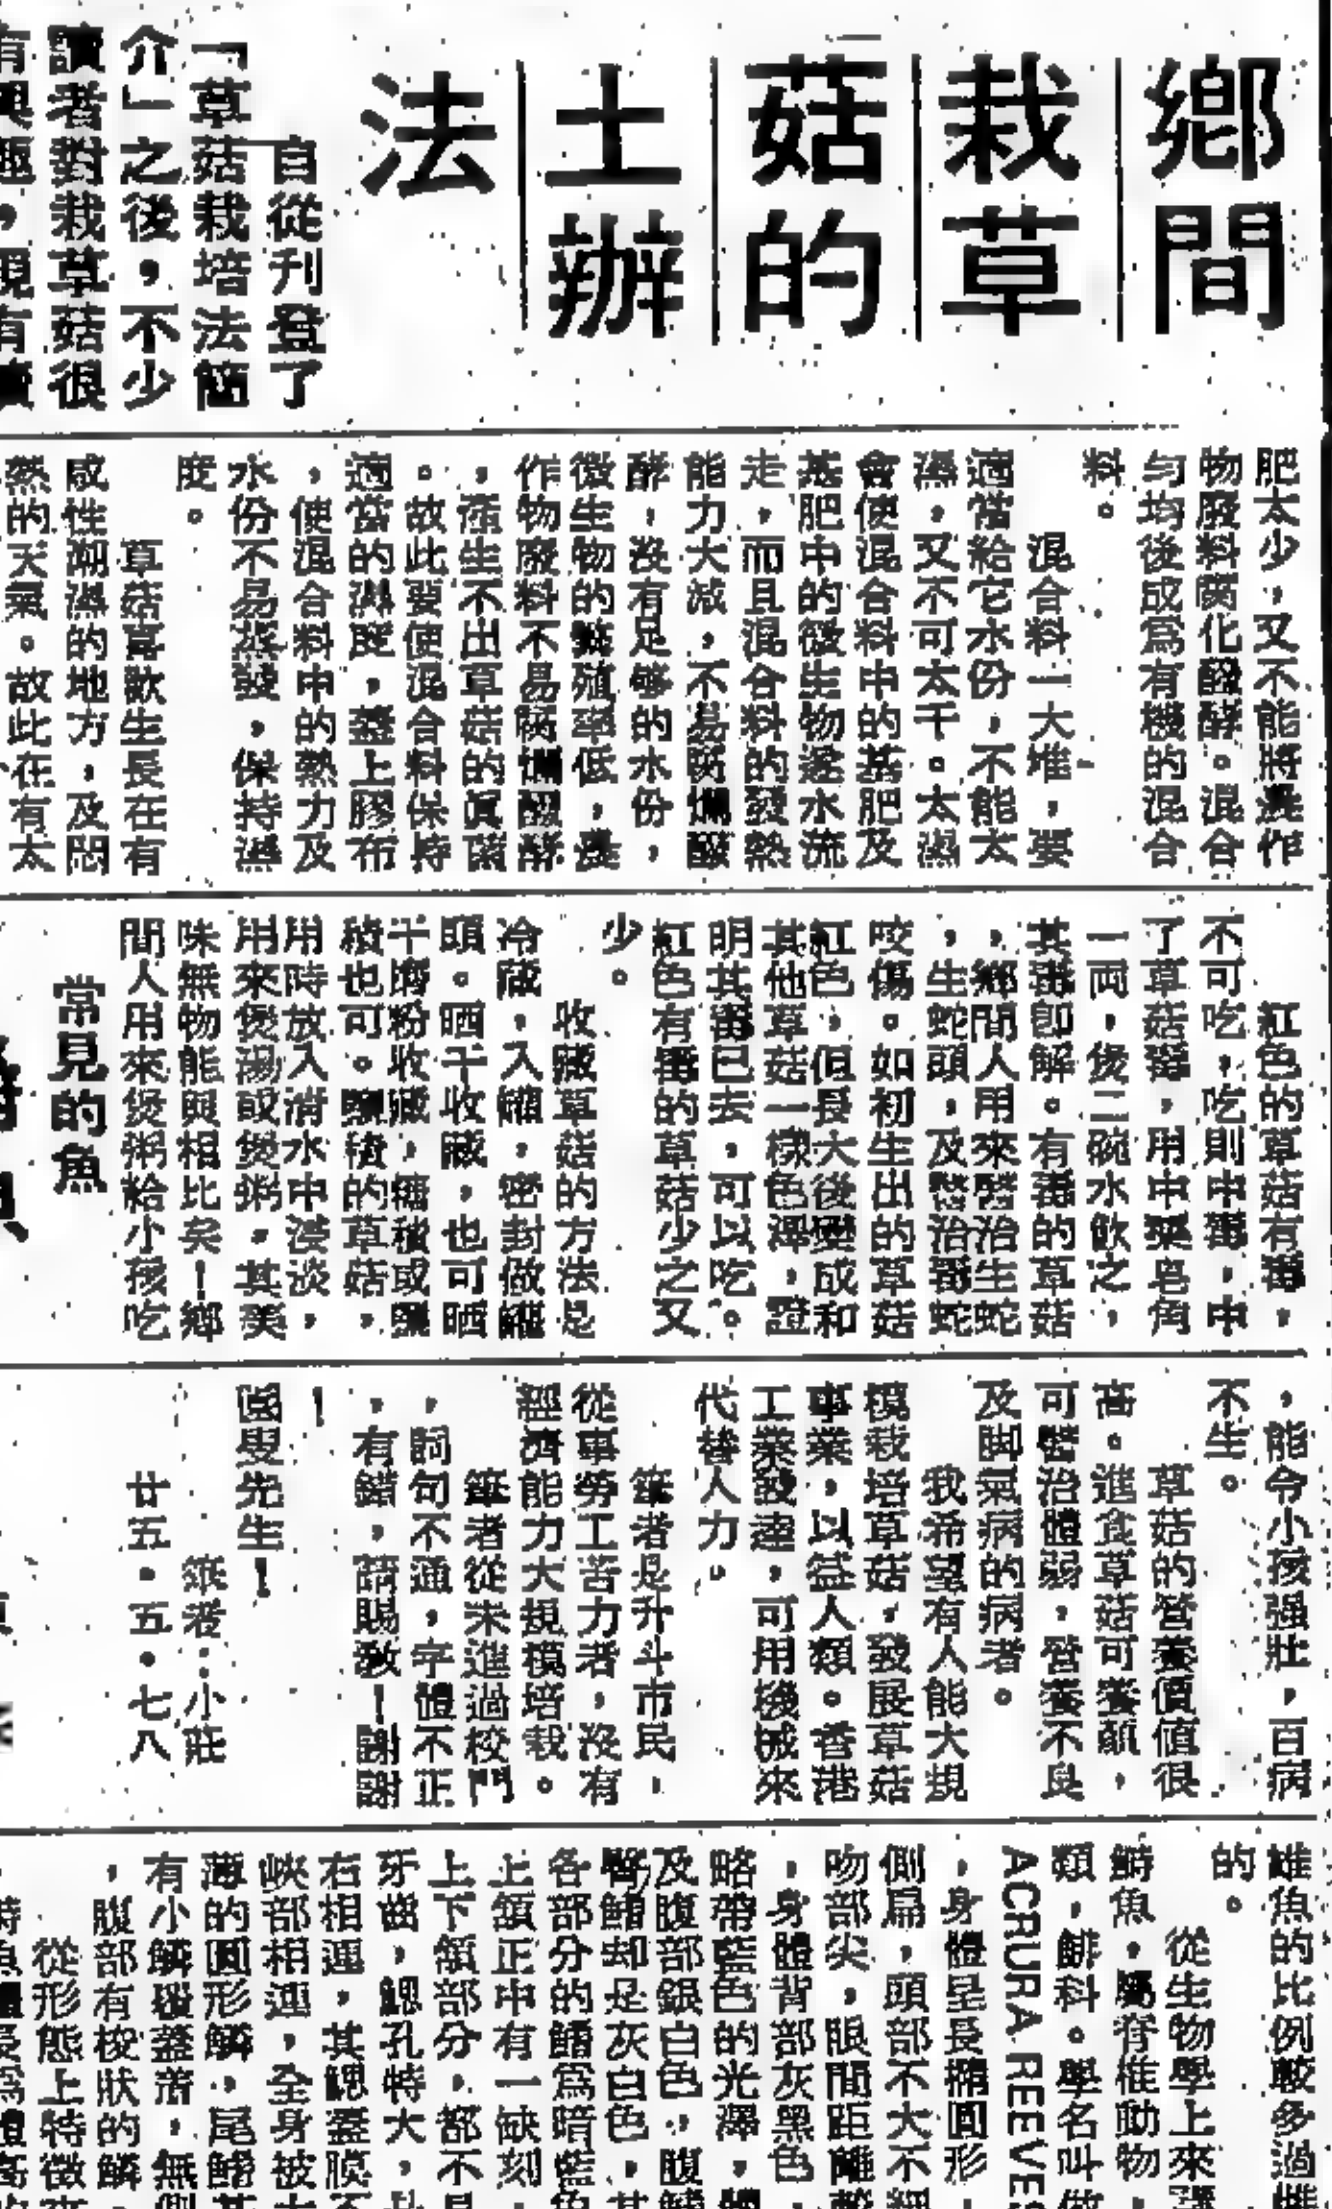 鄉間
栽草
菇的
土辦
法
自從刋登了
「草菇栽培法簡
介」之後，不少
讀者對栽草菇很
有興趣，現有讀
肥太少，又不能將農作
物廢料腐化醱酵。混合
勻均後成爲有機的混合
料。
混合料一大堆，要
適當給它水份，不能太
濕，又不可太干。太濕
會使混合料中的基肥及
基肥中的微生物逐水流
走，而且混合料的發熱
能力大减，不易腐爛醱
酵，沒有足够的水份，
微生物的繁殖率低，農
作物廢料不易腐爛醱酵
，產生不出草菇的眞菌
。故此要使混合料保持
適當的濕度，蓋上膠布
，使混合料中的熱力及
水份不易蒸發，保持濕
度。
草菇喜歡生長在有
咸性潮濕的地方，及悶
熱的天氣。故此在有太
紅色的草菇有毒，
不可吃，吃則中毒，中
了草菇毒，用中藥皂角
一両，煲二碗水飲之，
其毒卽解。有毒的草菇
，鄉間人用來醫治生蛇
，生蛇頭，及醫治毒蛇
咬傷。如初生出的草菇
紅色，但長大後變成和
其他草菇一樣色澤，證
明其毒已去，可以吃。
紅色有毒的草菇少之又
少。
收藏草菇的方法是
冷藏，入罐，密封做罐
頭。晒干收藏，也可晒
干磨粉收藏，糖積或鹽
積也可。鹽積的草菇，
用時放入清水中浸淡，
用來煲湯或煲粥，其美
味無物能與相比矣！鄉
間人用來煲粥給小孩吃
常見的魚
，能令小孩强壯，百病
不生。
草菇的營養價值很
高。進食草菇可養顏，
可醫治體弱，營養不良
及脚氣病的病者。
我希望有人能大規
模栽培草菇，發展草菇
事業，以益人類。香港
工業發達，可用機械來
代替人力。
筆者是升斗市民，
從事勞工苦力者，沒有
經濟能力大規模培栽。
筆者從未進過校門
，詞句不通，字體不正
，有錯，請賜敎！謝謝
！
園叟先生！
筆者：小莊
廿五・五・七八
雄魚的比例較多過雌
的。
從生物學上來講
鰣魚，屬脊椎動物
類，鯡科。學名叫做
ACRURA REEVES
，身體呈長橢圓形，
側扁，頭部不大不細
吻部尖，眼間距離
，身體背部灰黑色，
略帶藍色的光澤，體
及腹部銀白色，腹鰭
臀鰭却是灰白色，其
各部分的鰭爲暗藍色
上頷正中有一缺刻，
上下頷部分，都不具
牙齒，鰓孔特大，
右相連，其鰓蓋膜不
峽部相連，全身被
薄的圓形鱗，尾鰭基
有小鱗覆蓋着，無側
，腹部有梭狀的鱗，
從形態上特徵來